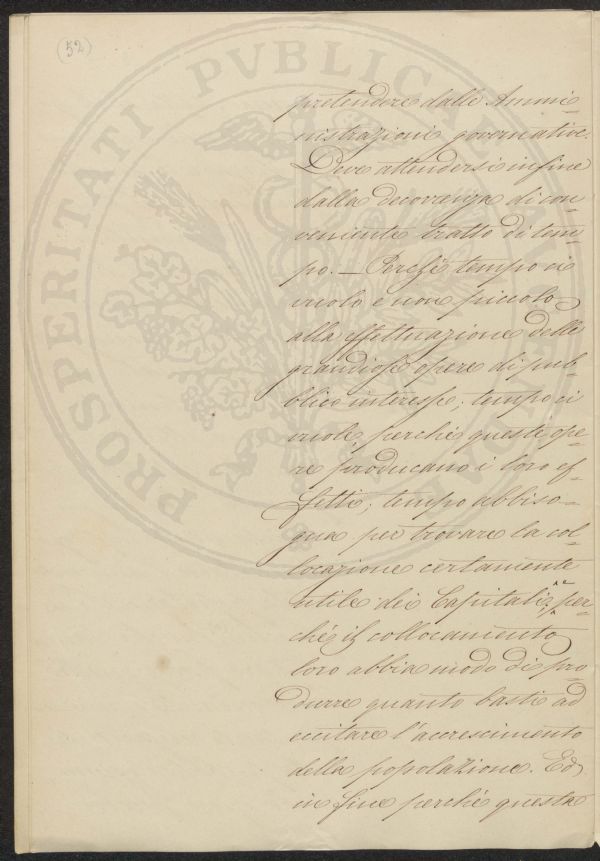 (52)
pretendere dalle Ammi=
nistrazioni governative.
Deve attendersi infine
dalla decorrenza di con=
veniente tratto di tem=
po. — Perchè tempo ci
vuole e non piccolo
alla effettuazione delle
grandiose opere di pub=
blico interesse; tempo ci
vuole, perchè queste ope=
re producano i loro ef=
fetti; tempo abbiso=
gna per trovare la col=
locazione certamente
utile dei Capitali; per=
chè il collocamento
loro abbia modo di pro=
durre quanto basti ad
eccitare l'accrescimento
della popolazione. Ed
in fine perchè questa
PROSPERITATI PVBLICAE